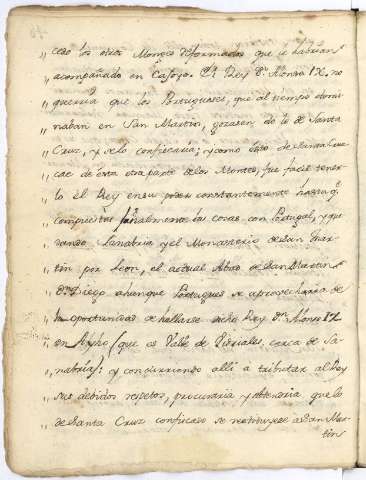 „ cedo los otros Monges Reformados que le habrian
„ acompañado en Cafoyo. El Rey Dn. Alonso IX, no
„ querria que los Portugueses, que al tiempo domi-
„ naban en San Martin, gozasen de lo de Santa
„ Cruz, y se lo confiscaria; y como esto de Santa Cruz
„ cae de esta otra parte de los Montes, fue facil tener
„ lo el Rey en su poder constantemente hasta q.
„ compuestas finalmente las cosas con Portugal, y que
„ dando Sanabria y el Monasterio de San Mar-
„ tin por Leon, el actual Abad de San Martin
„ Dn. Diego ahunque Portugues se aprovecharia de
„ la oportunidad de hallarse dicho Rey Dn. Alonso IX
„ en (que es Valle de cerca de Sa-
„ nabria): y concurriendo alli a tributar al Rey
„ sus debidos respetos, procuraria y obtendria que lo
„ de Santa Cruz confiscado se restituyese a San Mar-
tin;